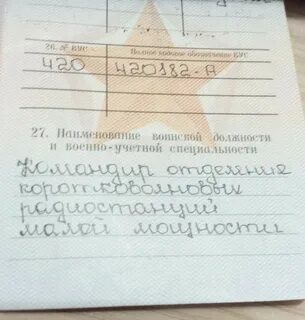 26. № ВУС Полное кодовое обозначение ВУС
420 420182-А
27. Наименование воинской должности
и военно-учетной специальности
Командир отделение
коротковолновых
радиостанций
малой мощности